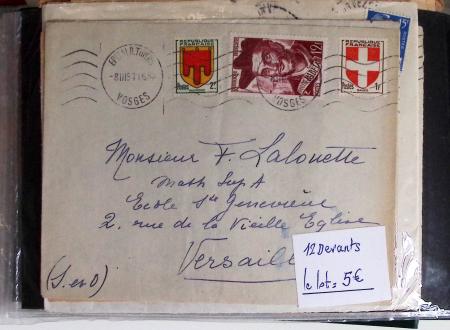 VOSGES
REPUBLIQUE FRANÇAISE
2F
12F
VOSGES
REPUBLIQUE FRANÇAISE
1F
15F
Monsieur F. Lalouette
Math Sup A
Ecole Ste Geneviève
2. rue de la Vieille Eglise
Versaill
(S. et O)
12 Devants
le lot = 5€